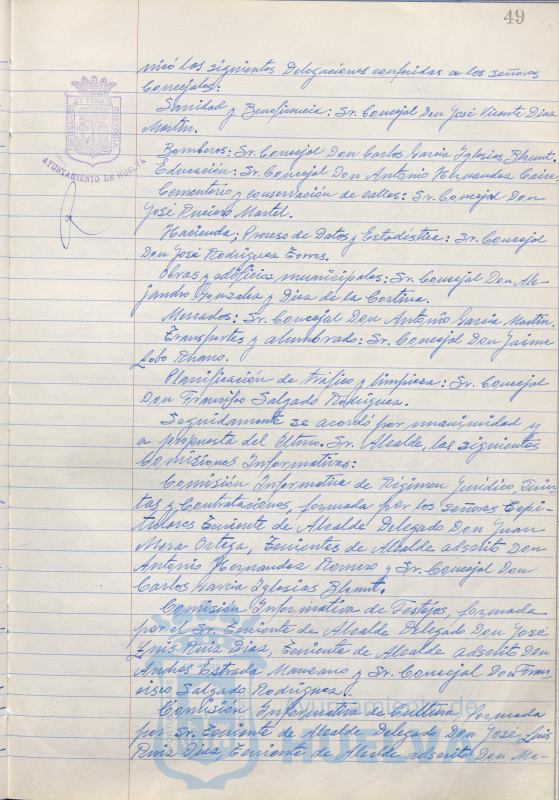 49
nicó las siguientes Delegaciones conferidas a los señores
Concejales:
Sanidad y Beneficencia: Sr. Concejal Don José Vicente Diaz
Martin.
Bomberos: Sr. Concejal Don Carlos Garcia Yglesias
Educación: Sr. Concejal Don Antonio Hernandez
Cementerio y conservación de calles: Sr. Concejal Don
José Martel.
Hacienda; Proceso de Datos y Estadística: Sr. Concejal
Don José Rodriguez Torres.
Obras y edificios municipales: Sr. Concejal Don Ale-
jandro Gonzalez y Diez de la Cortina.
Mercados: Sr. Concejal Don Antonio Garcia Martin.
Transportes y alumbrado: Sr. Concejal Don Jaime
Lobo
Planificación de tráfico y limpieza: Sr. Concejal
Don Francisco Salgado Rodriguez.
Seguidamente se acordó por unanimidad y
a propuesta del Iltmo. Sr. Alcalde, las siguientes
Comisiones Informativas:
Comisión Informativa de Régimen Jurídico,
y Contrataciones, formada por los señores Capi-
tulares Teniente de Alcalde Delegado Don Juan
Mora Ortega, Tenientes de Alcalde adscrito Don
Antonio Hernandez Romero y Sr. Concejal Don
Carlos Garcia Yglesias
Comisión Informativa de Festejos, formada
por el Sr. Teniente de Alcalde Delegado Don José
Luis Ruiz Diaz, Teniente de Alcalde adscrito Don
Andres Estrada Manzano y Sr. Concejal Don Fran-
cisco Salgado Rodriguez.
Comisión Informativa de Cultura formada
por Sr. Teniente de Alcalde Delegado Don José Luis
Ruiz Diaz, Teniente de Alcalde adscrito Don Ma-
AYUNTAMIENTO DE HUELVA
Ayuntamiento de
HUELVA